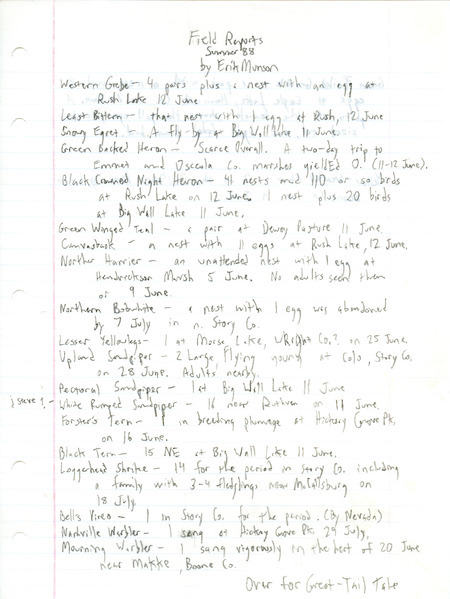 Field Reports
Summer 88
by Erik Munson
Western Grebe - 4 pairs plus a nest with an egg at
Rush Lake 12 June
Least Bittern - 1 that nest with 1 egg at Rush, 12 June
Snowy Egret - A fly by at Big Wall Lake 11 June.
Green Backed Heron - Scarce Overall. A two-day trip to
Emmet and Osceola Co. marshes yiellEd 0. (11-12 June).
Black Crowned Night Heron - 41 nests and 110 or so birds
at Rush Lake on 12 June. 1 nest plus 20 birds
at Big Wall Lake 11 June.
Green Winged Teal - a pair at Dewey Pasture 11 June.
Canvasback - a nest with 11 eggs at Rush Lake, 12 June.
Norther Harrier - an unattended nest with 1 egg at
Hendrickson Marsh 5 June. No adults seen then
or 9 June.
Northern Bobwhite - a nest with 1 egg was abandoned
by 7 July in n. Story Co.
Lesser Yellowlegs - 1 at Morse Lake, WRight Co.? on 25 June.
Upland Sandpiper - 2 Large flying young at Colo, Story Co.
on 28 June. Adults nearby.
Pectoral Sandpiper - 1 at Big Wall Lake 11 June
White Rumped Sandpiper - 16 near Ruthven on 11 June.
Forster's Tern - 1 in breeding plumage at Hickory Grove Pk.
on 16 June.
Black Tern - 15 NE at Big Wall Lake 11 June.
Loggerhead Shrike - 14 for the period in Story Co. including
a family with 3-4 fledglings near McCallsburg on
18 July.
Bell's Vireo - 1 in Story Co. for the period. (By Nevada)
Nashville Warbler - 1 sang at Hickory Grove Pk. 29 July.
Mourning Warbler - 1 sang vigorously in the heat of 20 June
near , Boone Co.
Over for Great-Tail Tale